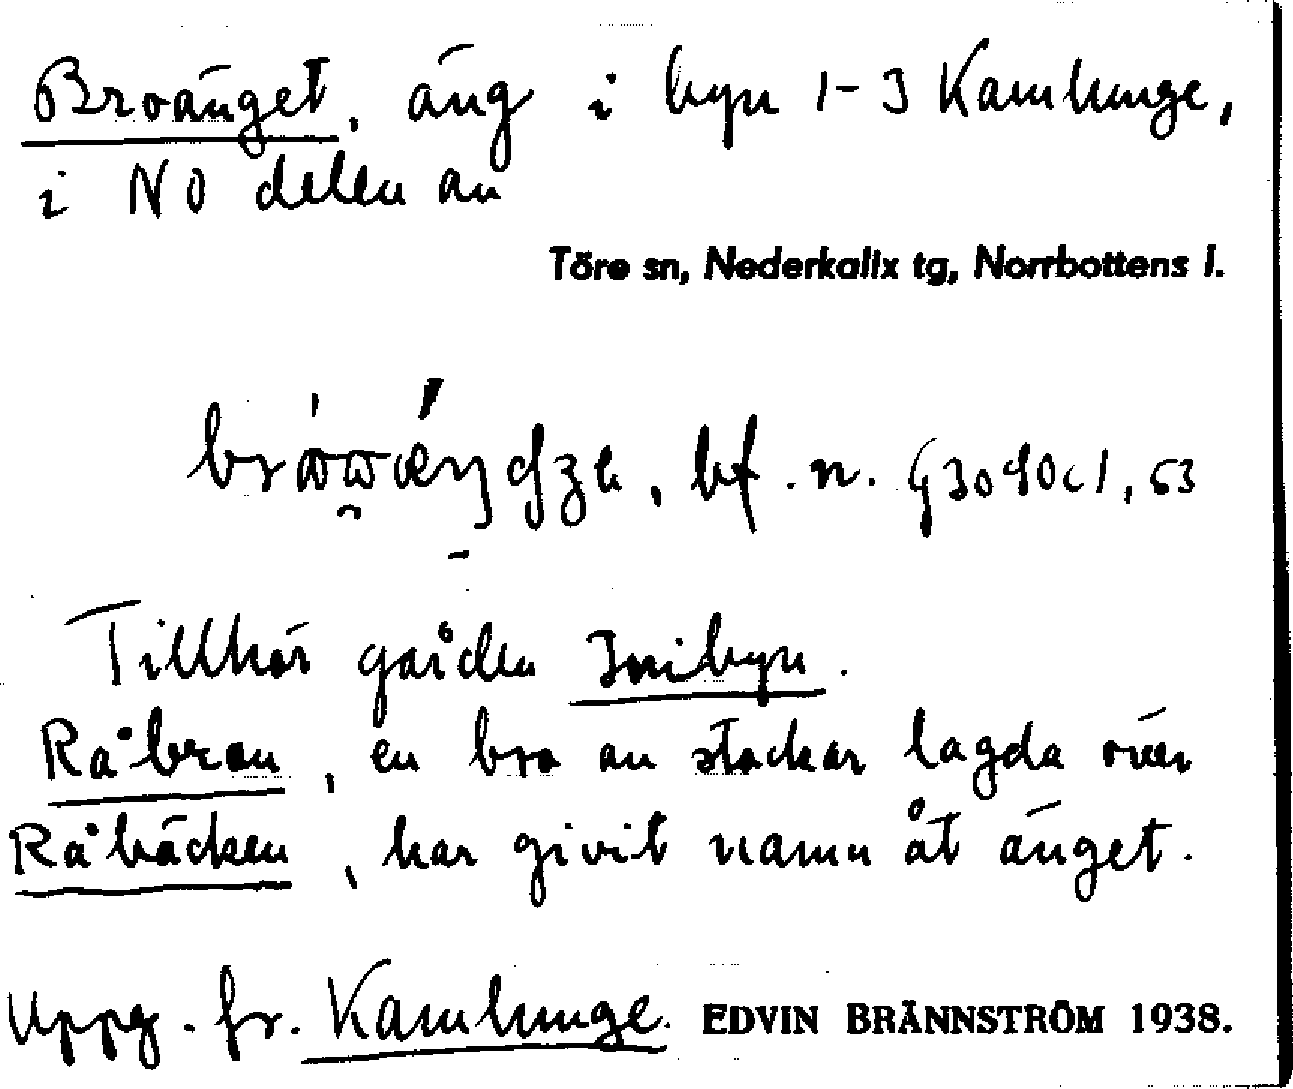 Broänget, äng i byn 1-3 Kamlunge,
i NO delen av
Töre sn, Nederkalix tg, Norrbottens l.
bf. n. G3090c1, 63
Tillhör gården Inibyn.
Råbron, en bro av stockar lagda över
Råbäcken, har givit namn åt änget.
Uppg. fr. Kamlunge. EDVIN BRÄNNSTRÖM 1938.